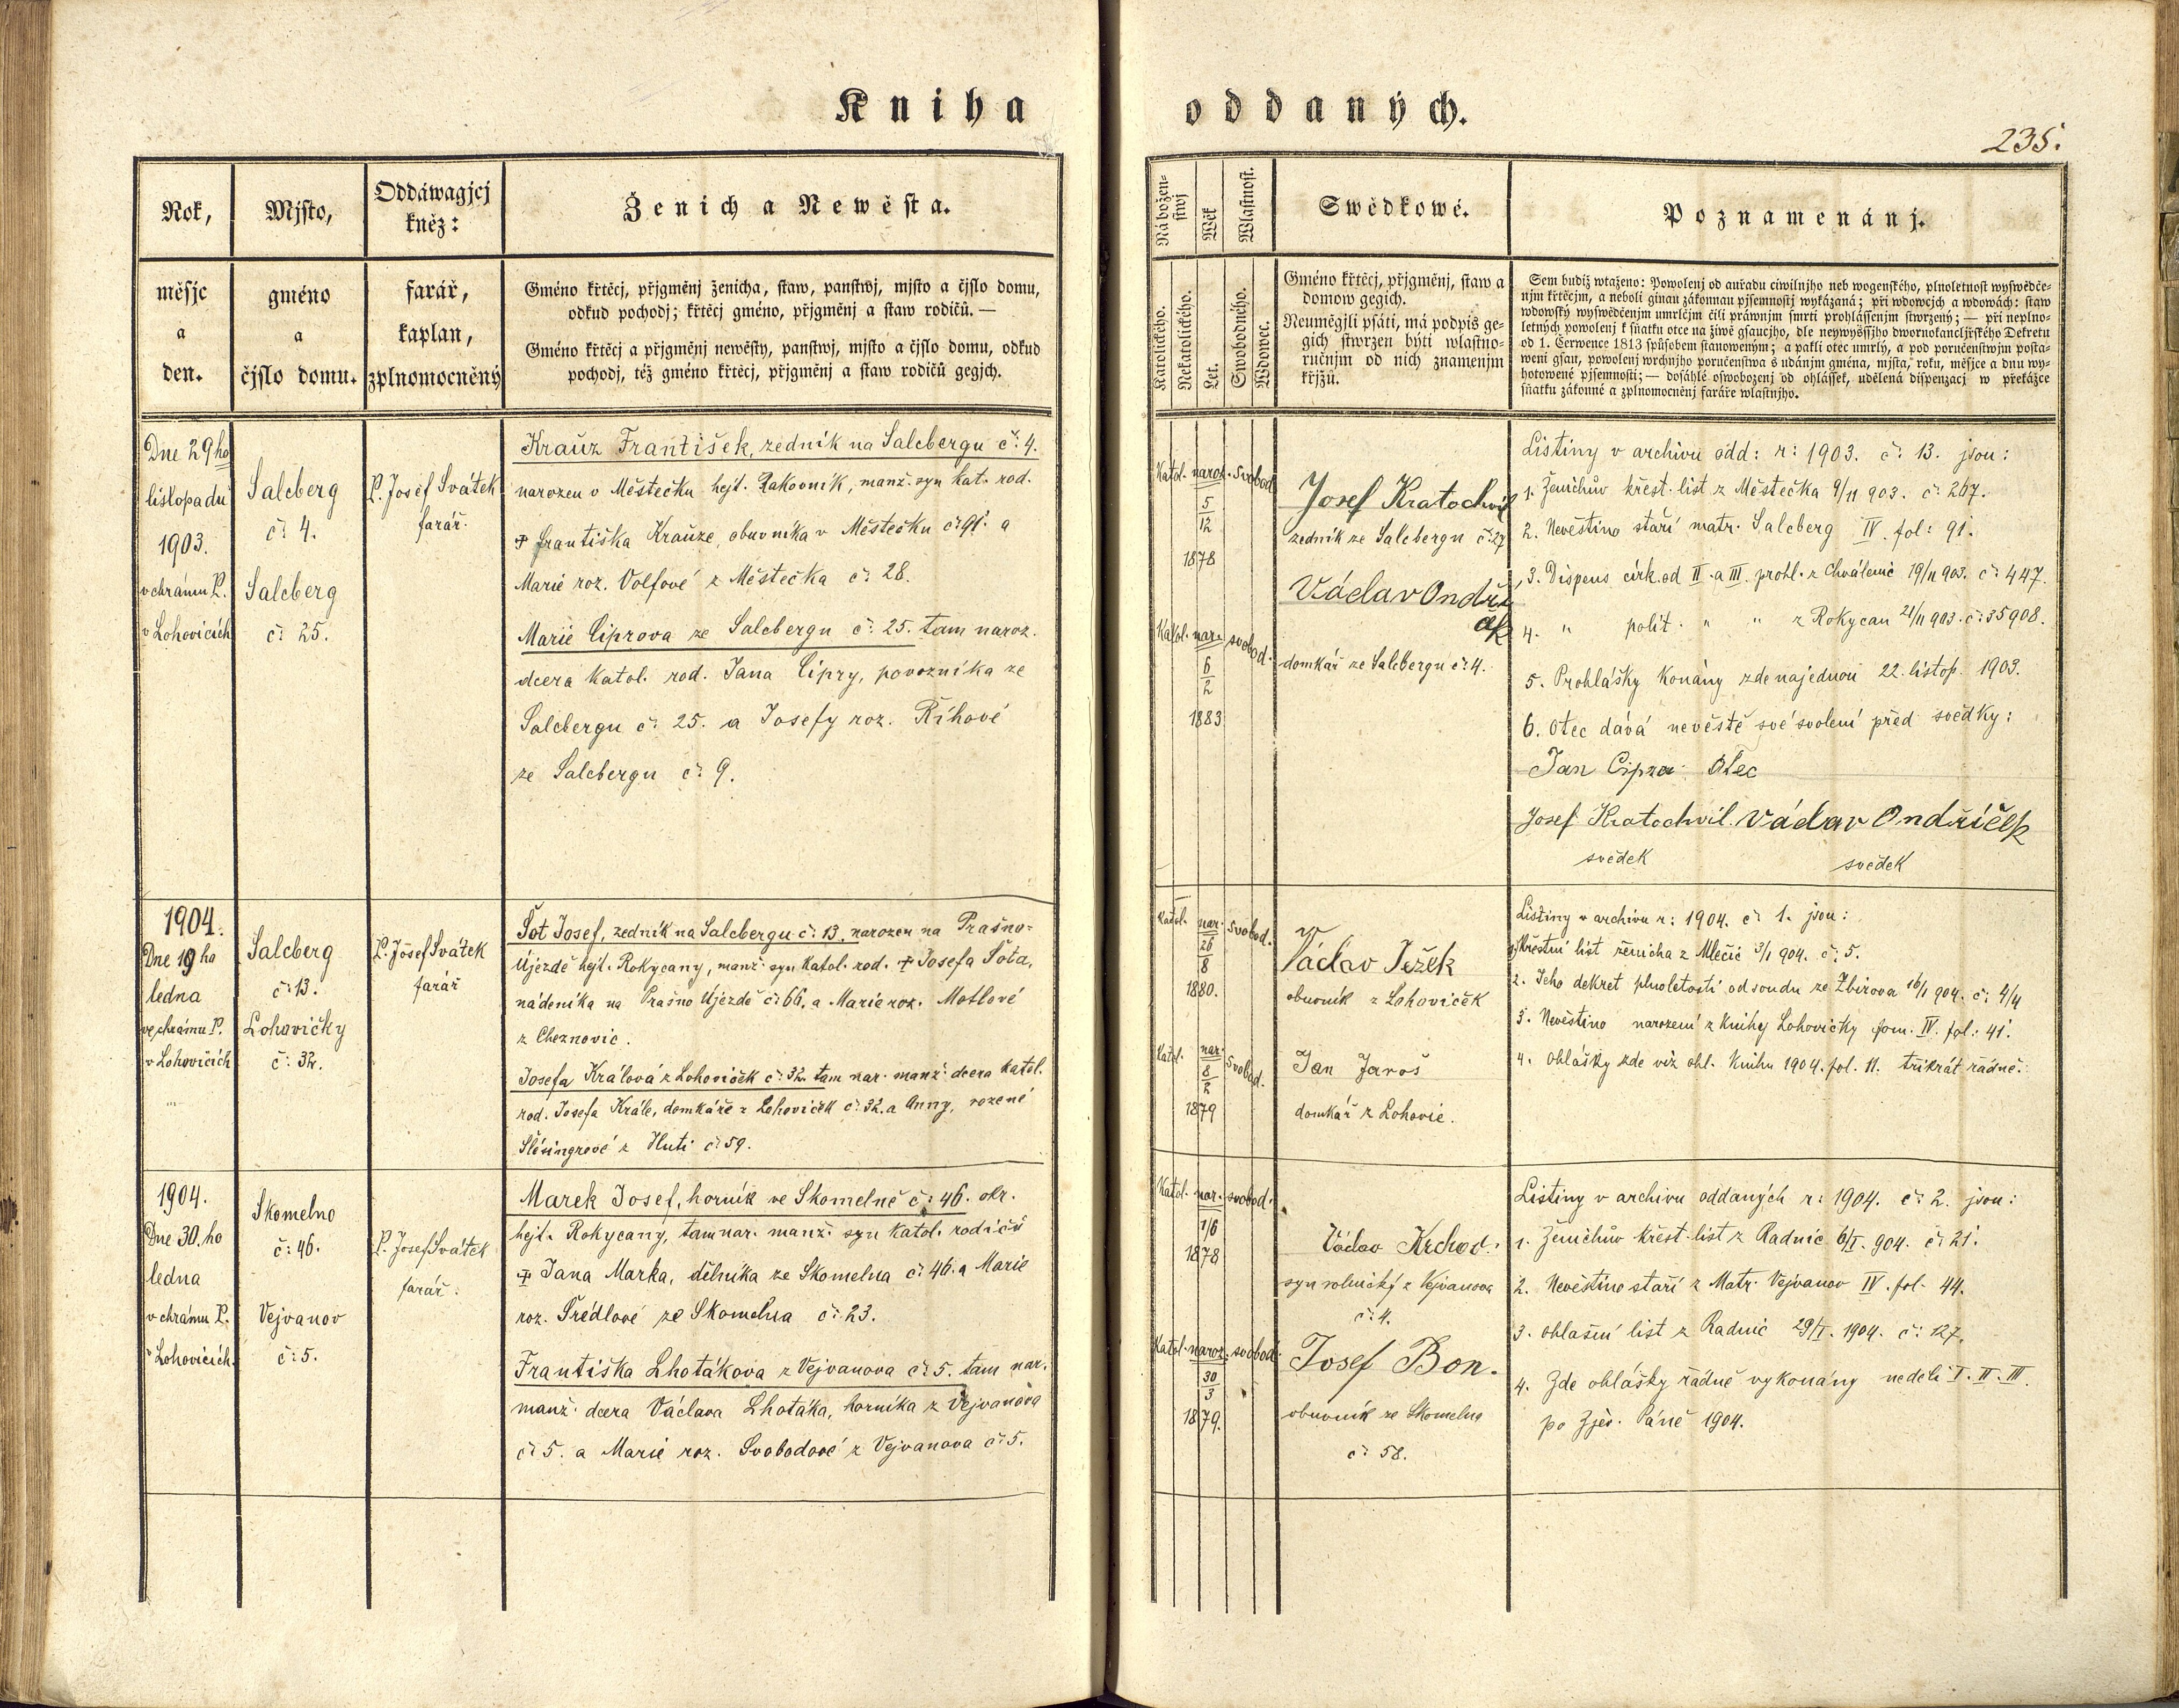 Kniha oddaných.
235.
Rok,
měsjc
a
den.
Mjsto,
gméno
a
čjslo domu.
Oddáwagjcj
kněz:
farář,
kaplan,
zplnomocněný
Ženich a Newěsta.
Gméno křtěcj, přjgměnj ženicha, staw, panstwj, mjsto a čjslo domu,
odkud pochodj; křtěcj gméno, přjgměnj a staw rodičů. —
Gméno křtěcj a přjgměnj newěsty, panstwj, mjsto a čjslo domu, odkud
pochodj, též gméno křtěcj, přjgměnj a staw rodičů gegjch.
Nábožen-
stwj
Katolického.
Nekatolického.
Wěk
Let.
Wlastnost.
Swobodného.
Wdowec.
Swědkowé.
Gméno křtěcj, přjgměnj, staw a
domow gegich.
Neumělgjli psáti, má podpis ge-
gich stwrzen býti wlastno-
ručnjm od nich znamenjm
křjžů.
Poznamenánj.
Sem budiž wtaženo: Powolenj od auřadu ciwilnjho neb wogenského, plnoletnost wyswědče-
njm křtěcjm, a neboli ginau zákonnau pjsemnostj wykázaná; při wdowcjch a wdowách: staw
wdowský wyswědčenjm umrlčjm čili práwnjm smrti prohlássenjm stwrzený; — při neplno-
letných powolenj k sňatku otce na žiwě gsaucjho, dle neywyššjho dwornokancljřského Dekretu
od 1. Čerwence 1813 spůsobem stanoweným; a pakli otec umrlý, a pod poručenstwjm posta-
weni gsau, powolenj wrchnjho poručenstwa s udánjm gména, mjsta, roku, měsjce a dnu wy-
hotowené pjsemnosti; — dosáhlé oswobozenj od ohlássek, udělená dispensacj w překážce
sňatku zákonné a zplnomocněnj faráře wlastnjho.
Dne 29ho
listopadu
1903.
v chrámu P.
v Lohovicích
Salcberg
č: 4.
Salcberg
č: 25.
P. Josef Svátek
farář.
Krauz František, zedník na Salcbergu č: 4.
narozen v Městečku hejt. Rakovník, manž. syn kat. rod.
† Františka Krauze, obuvníka v Městečku č: 91. a
Marie roz. Volfové z Městečka č: 28.
Marie Ciprova ze Salcbergu č: 25. tam naroz.
dcera katol. rod. Jana Cipry, povozníka ze
Salcbergu č: 25. a Josefy roz. Říhové
ze Salcbergu č: 9.
Katol. naroz. svobod.
5
12
1878
Katol. nar. svobod.
6
2
1883
Josef Kratochvil
zedník ze Salcbergu č: 27
Václav Ondříč
ek
domkář ze Salcbergu č: 4.
Listiny v archivu odd: r: 1903. č: 13. jsou:
1. Ženichův křest. list z Městečka 9/11 903. č: 267.
2. Nevěstino stáří matr. Salcberg IV. fol: 91.
3. Dispens círk. od II. a III. prohl. z Chválenic 19/11 903. č: 447.
4. " polit. " " z Rokycan 21/11 903. č: 35908.
5. Prohlášky konány zde najednou 22. listop. 1903.
6. Otec dává nevěstě své svolení před svědky:
Jan Cipra Otec
Josef Kratochvil. Václav Ondříček
svědek svědek
1904.
Dne 19 ho
ledna
ve chrámu P.
v Lohovicích
Salcberg
č: 13.
Lohovičky
č: 32.
P. Josef Svátek
farář
Šot Josef, zedník na Salcbergu č: 13. narozen na Prašno-
Újezdě hejt. Rokycany, manž. syn katol. rod. † Josefa Šota,
nádeníka na Prašno Újezdě č: 66. a Marie roz. Motlové
z Cheznovic.
Josefa Králová z Lohoviček č: 32. tam nar. manž. dcera katol.
rod. Josefa Krále, domkáře z Lohoviček č: 32. a Anny, rozené
Šlésingrové z Huti č: 59.
Katol. nar. svobod.
26
8
1880.
Katol. nar. svobod.
8
2
1879
Václav Ježek
obuvník z Lohoviček
Jan Jaroš
domkář z Lohovic.
Listiny v archivu r: 1904. č: 1. jsou:
1. Křestní list ženicha z Mlečic 3/1 904. č: 5.
2. Jeho dekret plnoletosti od soudu ze Zbirova 16/1 904. č: 4/4
3. Nevěstino narození z knihy Lohovičky tom. IV. fol.: 41.
4. Ohlášky zde viz ohl. knihu 1904. fol. 11. třikrát řádně.
1904.
Dne 30. ho
ledna
v chrámu P.
v Lohovicích.
Skomelno
č: 46.
Vejvanov
č: 5.
P. Josef Svátek
farář.
Marek Josef, horník ve Skomelně č: 46. okr.
hejt. Rokycany, tam nar. manž. syn katol. rodičů
† Jana Marka, dělníka ze Skomelna č: 46. a Marie
roz. Šrédlové ze Skomelna č: 23.
Františka Lhotákova z Vejvanova č: 5. tam nar.
manž. dcera Václava Lhotáka, horníka z Vejvanova
č: 5. a Marie roz. Svobodové z Vejvanova č: 5.
Katol. nar. svobod.
1/6
1878
Katol. naroz. svobod.
30
3
1879.
Václav Krchov.
syn rolnický z Vejvanova
č: 4.
Josef Bon.
obuvník ze Skomelna
č: 58.
Listiny v archivu oddaných r: 1904. č: 2. jsou:
1. Ženichův křest. list z Radnic 6/I. 904. č: 21.
2. Nevěstino stáří z Matr. Vejvanov IV. fol. 44.
3. Ohlašní list z Radnic 29/I. 1904. č: 127.
4. Zde ohlášky řádně vykonány neděli I. II. III.
po Zjev. Páně 1904.